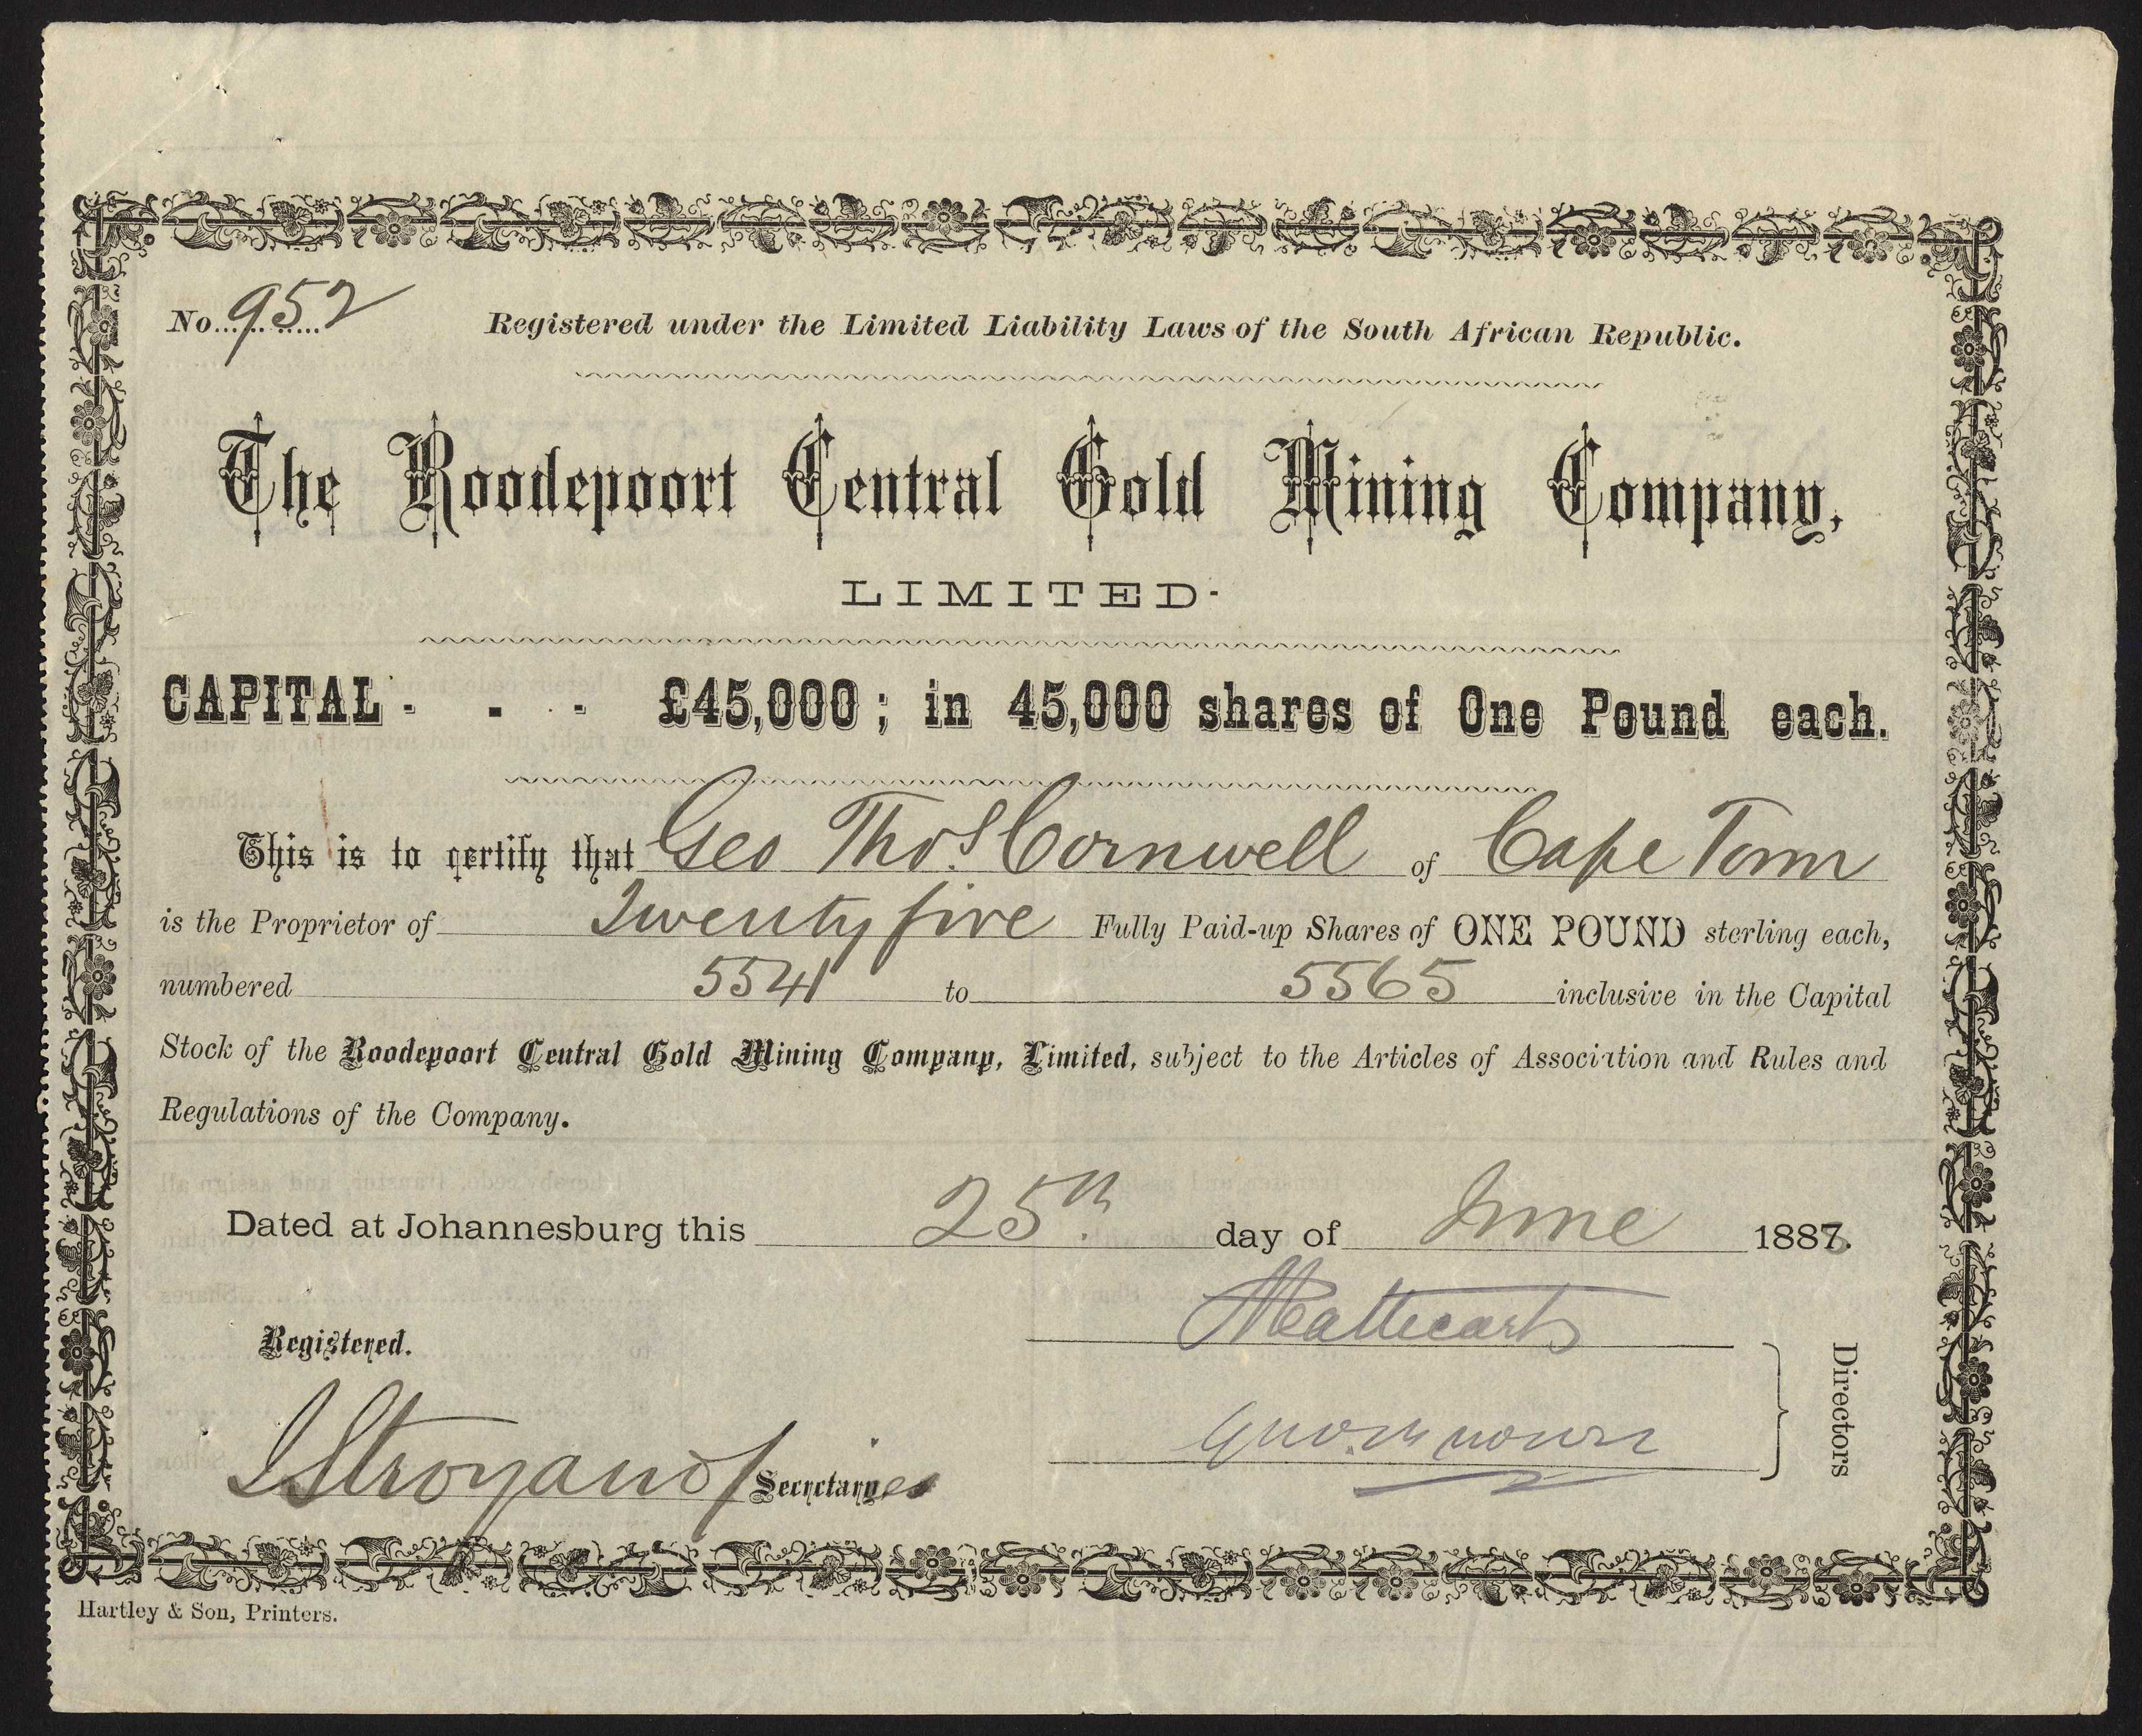 No. 952
Registered under the Limited Liability Laws of the South African Republic.
The Roodepoort Central Gold Mining Company,
LIMITED.
CAPITAL - - - £45,000; in 45,000 shares of One Pound each.
This is to certify that Geo Thos. Cornwell of Cape Town
is the Proprietor of Twenty five Fully Paid-up Shares of ONE POUND sterling each,
numbered 5541 to 5565 inclusive in the Capital
Stock of the Roodepoort Central Gold Mining Company, Limited, subject to the Articles of Association and Rules and
Regulations of the Company.
Dated at Johannesburg this 25th. day of June 188
Registered.
Directors
Secretary
Hartley & Son, Printers.